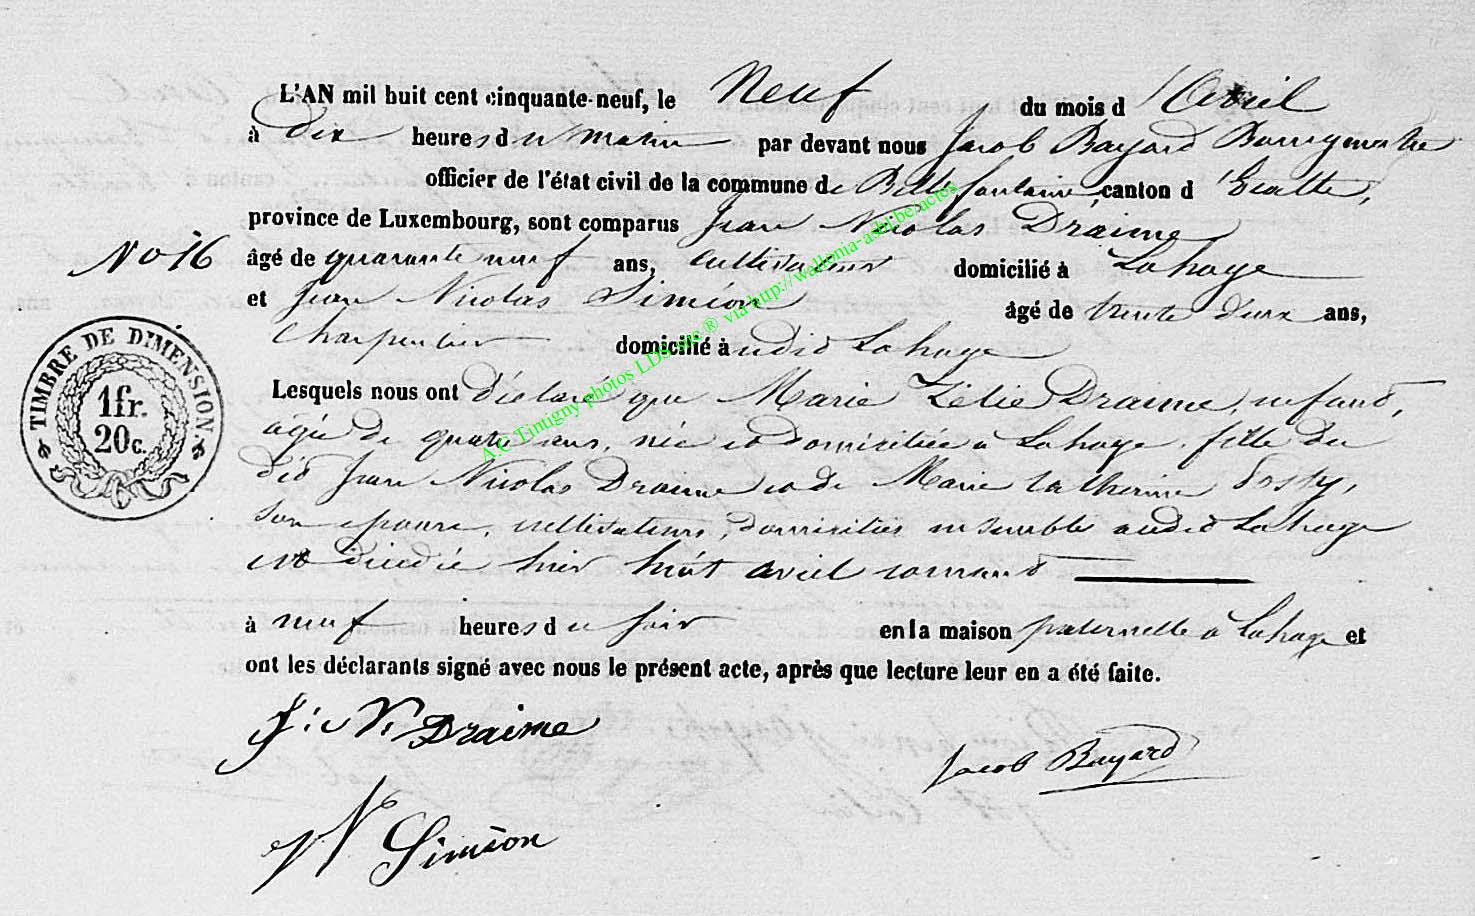 L'AN mil huit cent cinquante-neuf, le Neuf du mois d'Avril
à dix heures du matin par devant nous Jacob Bayard Bourgmestre
officier de l'état civil de la commune de Bellefontaine, canton d'Etalle,
province de Luxembourg, sont comparus Jean Nicolas Draime
No 16
âgé de quarante neuf ans, cultivateur domicilié à Lahage
et Jean Nicolas Siméon âgé de trente deux ans,
charpentier domicilié à audit Lahage
TIMBRE DE DIMENSION
1fr.
20c.
Lesquels nous ont déclaré que Marie Zélie Draime, enfant,
agée de quatre ans, née et domiciliée à Lahage fille du
dit Jean Nicolas Draime et de Marie Catherine
son epouse, cultivateurs, domiciliés ensemble audit Lahage
est décédée hier huit avril courant
à neuf heures du soir en la maison paternelle à Lahage et
ont les déclarants signé avec nous le présent acte, après que lecture leur en a été faite.
J: N. Draime
Jacob Bayard
JN Siméon
A.C Tintigny photos LDS inc ® via http://wallonia-asbl.be/actes